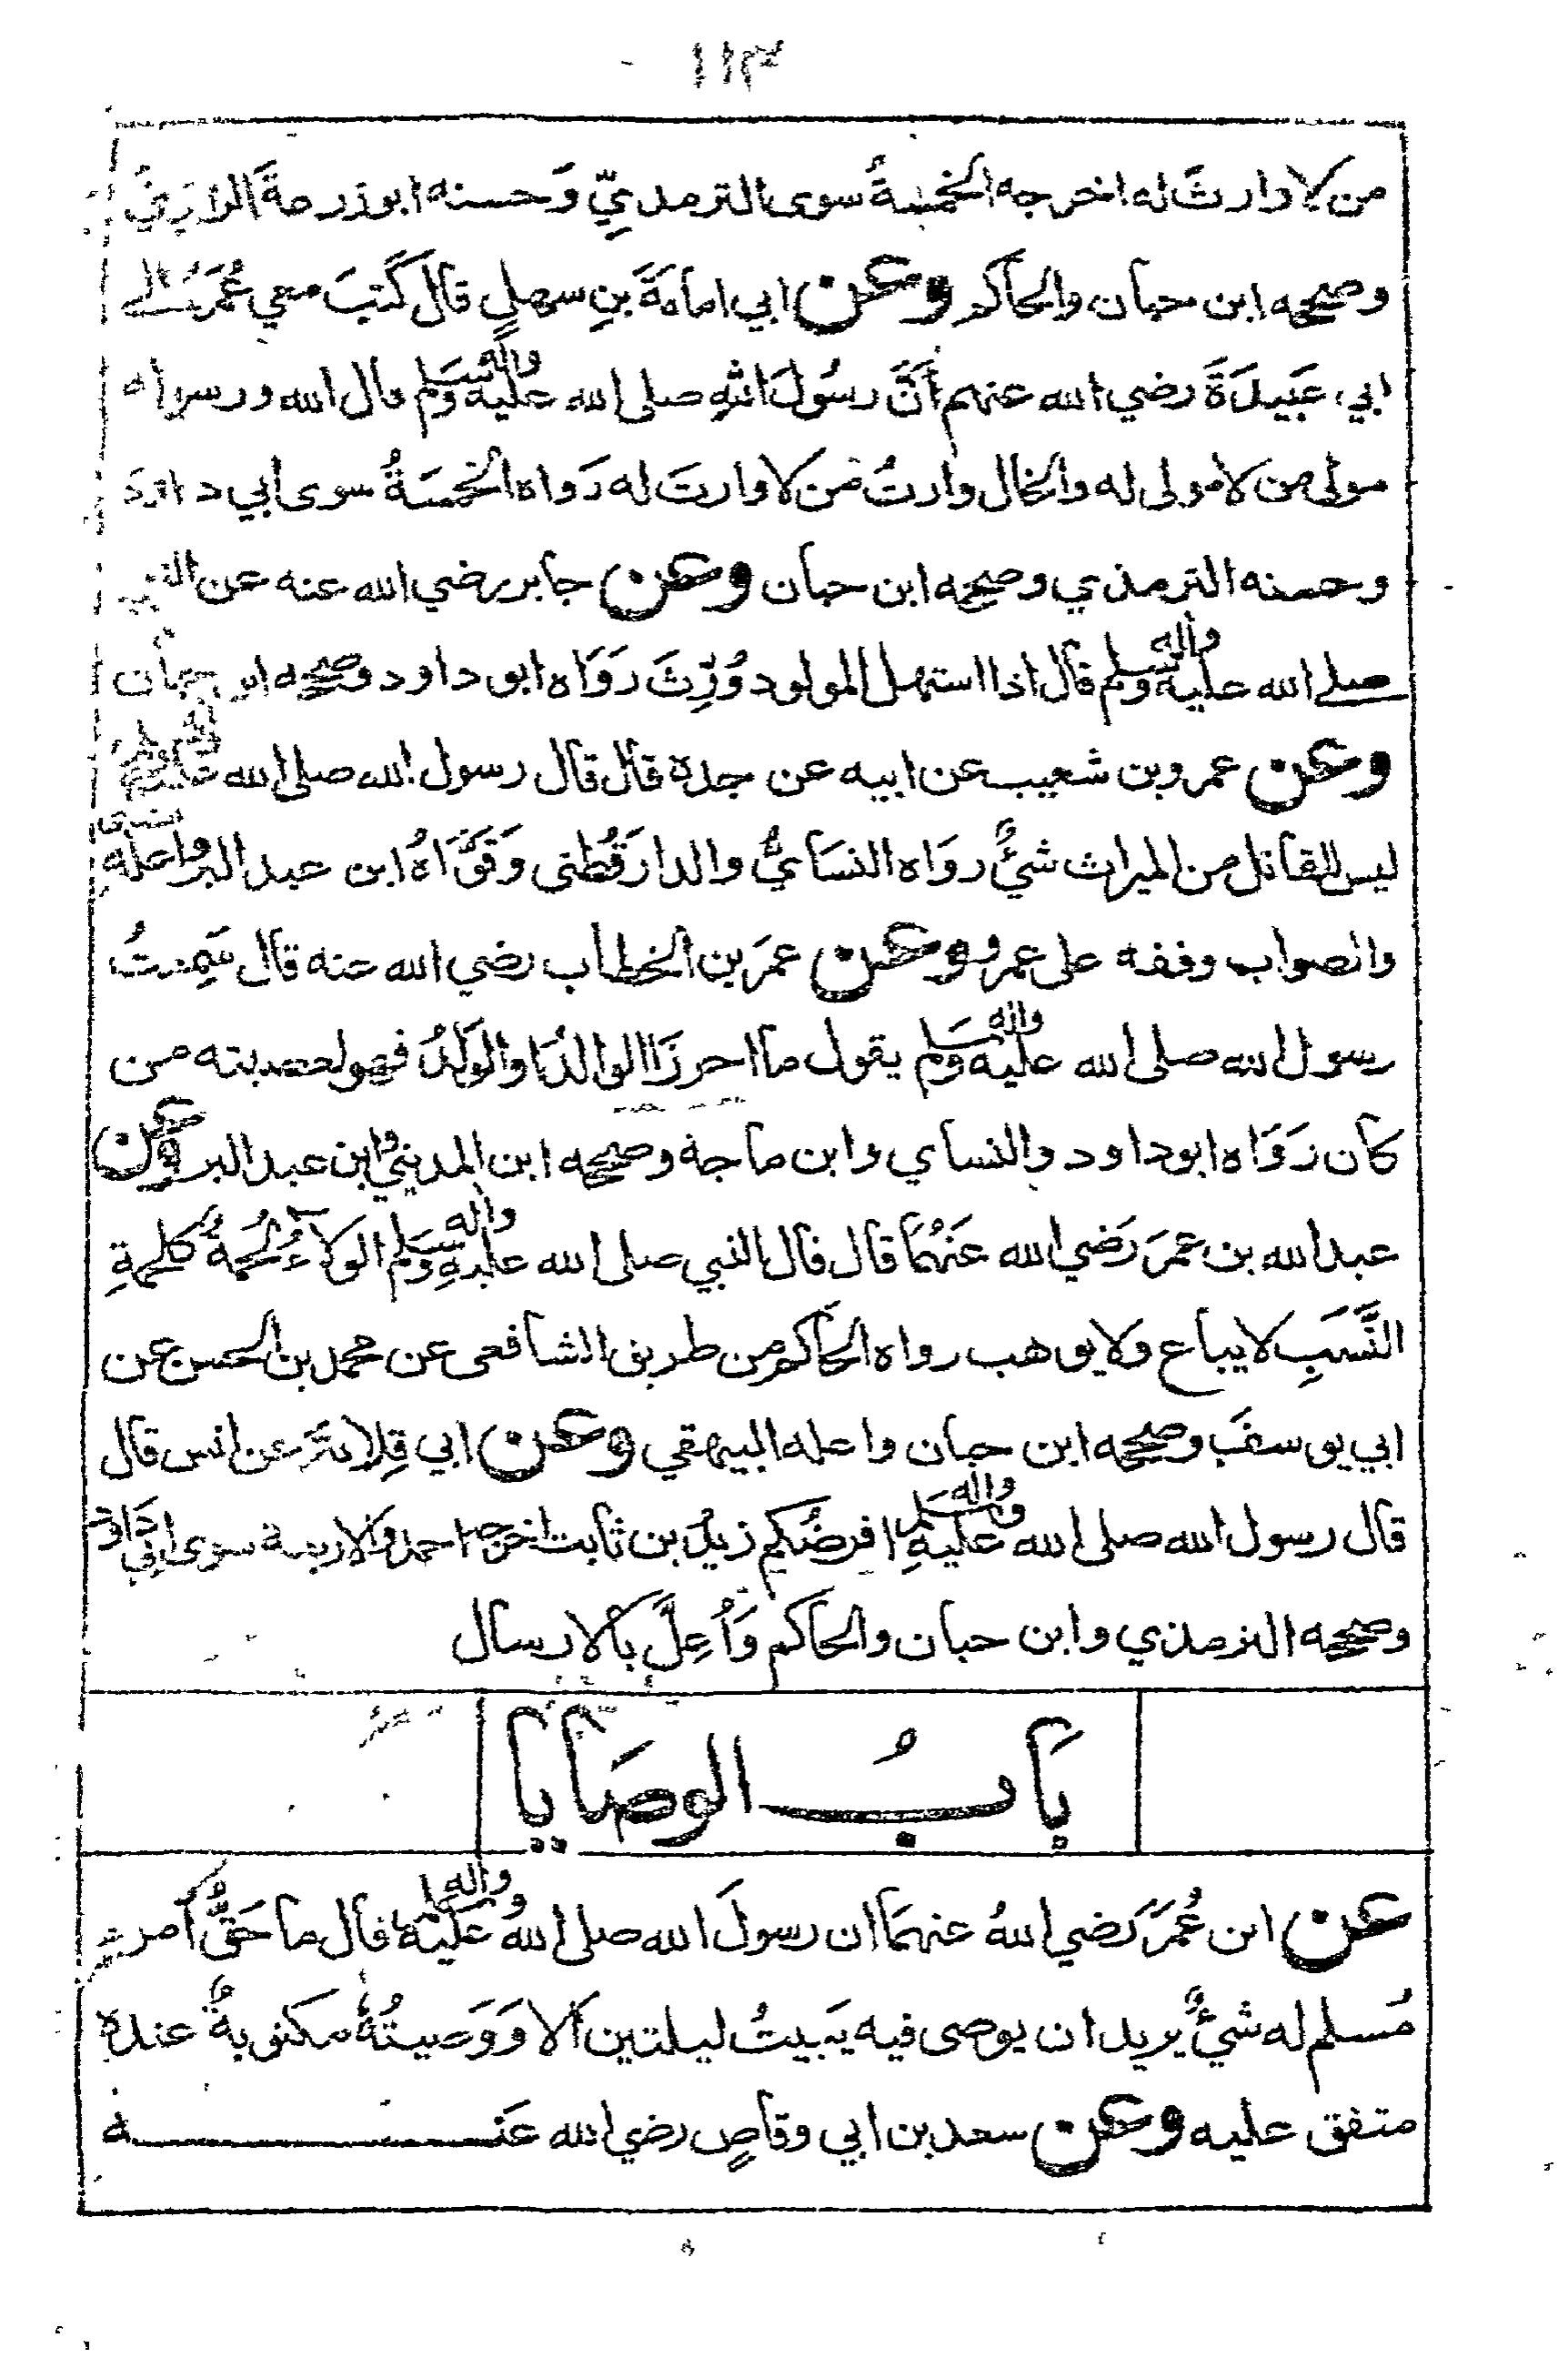 ١١٣
من لا وارث له اخرجه الخمسةُ سوى الترمذيِّ وَحسنه ابوزرعةَ الرازيُّ
وصححه ابن حبان والحاكم وعن ابي امامةَ بنِ سهلٍ قال كَتَبَ معي عُمَرُ الى
ابي عَبَيدَةَ رضي الله عنهم أنَّ رسُولَ اللهِ صلى الله عليه واله وسَلم قال الله ورسوله
مولى من لا مولى له والخال وارثُ من لا وارث له رَواه الخمسَةُ سوى ابي داود
وحسنه الترمذي وصححه ابن حبان وعن جابر رضي الله عنه عن النبي
صلى الله عليه واله وسلم قال اذا استهل المولود وُرِّثَ رَوَاه ابو داود وصححه ابن حبان
وعن عمرو بن شعيب عن ابيه عن جده قال قال رسول الله صلى الله عليه
ليس للقاتل من الميراث شئٌ روَاه النسَايُّ والدارقُطنى وَقَوَّاهُ ابن عبد البر واعله
والصواب وقفه على عمرو وعن عمرَ بن الخطاب رضي الله عنه قال سَمِعتُ
رسول الله صلى الله عليه واله وسَلم يقول ما احرزَ الوالدُ اَوالوَلَدُ فهو لعصبته من
كان رَوَاه ابوداود والنساي وابن ماجة وصححه ابن المدينيِ وابن عبد البر وعن
عبد الله بن عمرَ رَضي الله عنَهُمَا قال قال النبي صلى الله عليهِ واله وسَلم الولآءُ لُحمةٌ كلحمةِ
النَّسَبِ لا يباع ولا يوهب رواه الحاكم من طريق الشافعى عن محمد بن الحسن عن
ابي يوسفَ وصححه ابن حبان واعله البيهقي وعن ابي قِلابةَ عن انس قال
قال رسول الله صلى الله عليهِ واله وسَلم افرضُكم زيدُ بن ثابت اخرجه احمد والاربعة سوى ابي داود
وصححه الترمذي وابن حبان والحاكم وَاُعِلَّ بالارسال
بَابُ الوصَايَا
عن ابن عُمَرَ رَضي اللهُ عنهمَا ان رسولَ الله صلى اللهُ عَلَيْه واله وسلم قال ما حَقُّ امرئٍ
مُسلم له شئٌ يريد ان يوصى فيه يَبيتُ ليلتين اَلا وَوَصيتُهُ مكتوبةٌ عنده
متفق عليه وعن سعد بن ابي وقاصٍ رضي الله عَنـــه